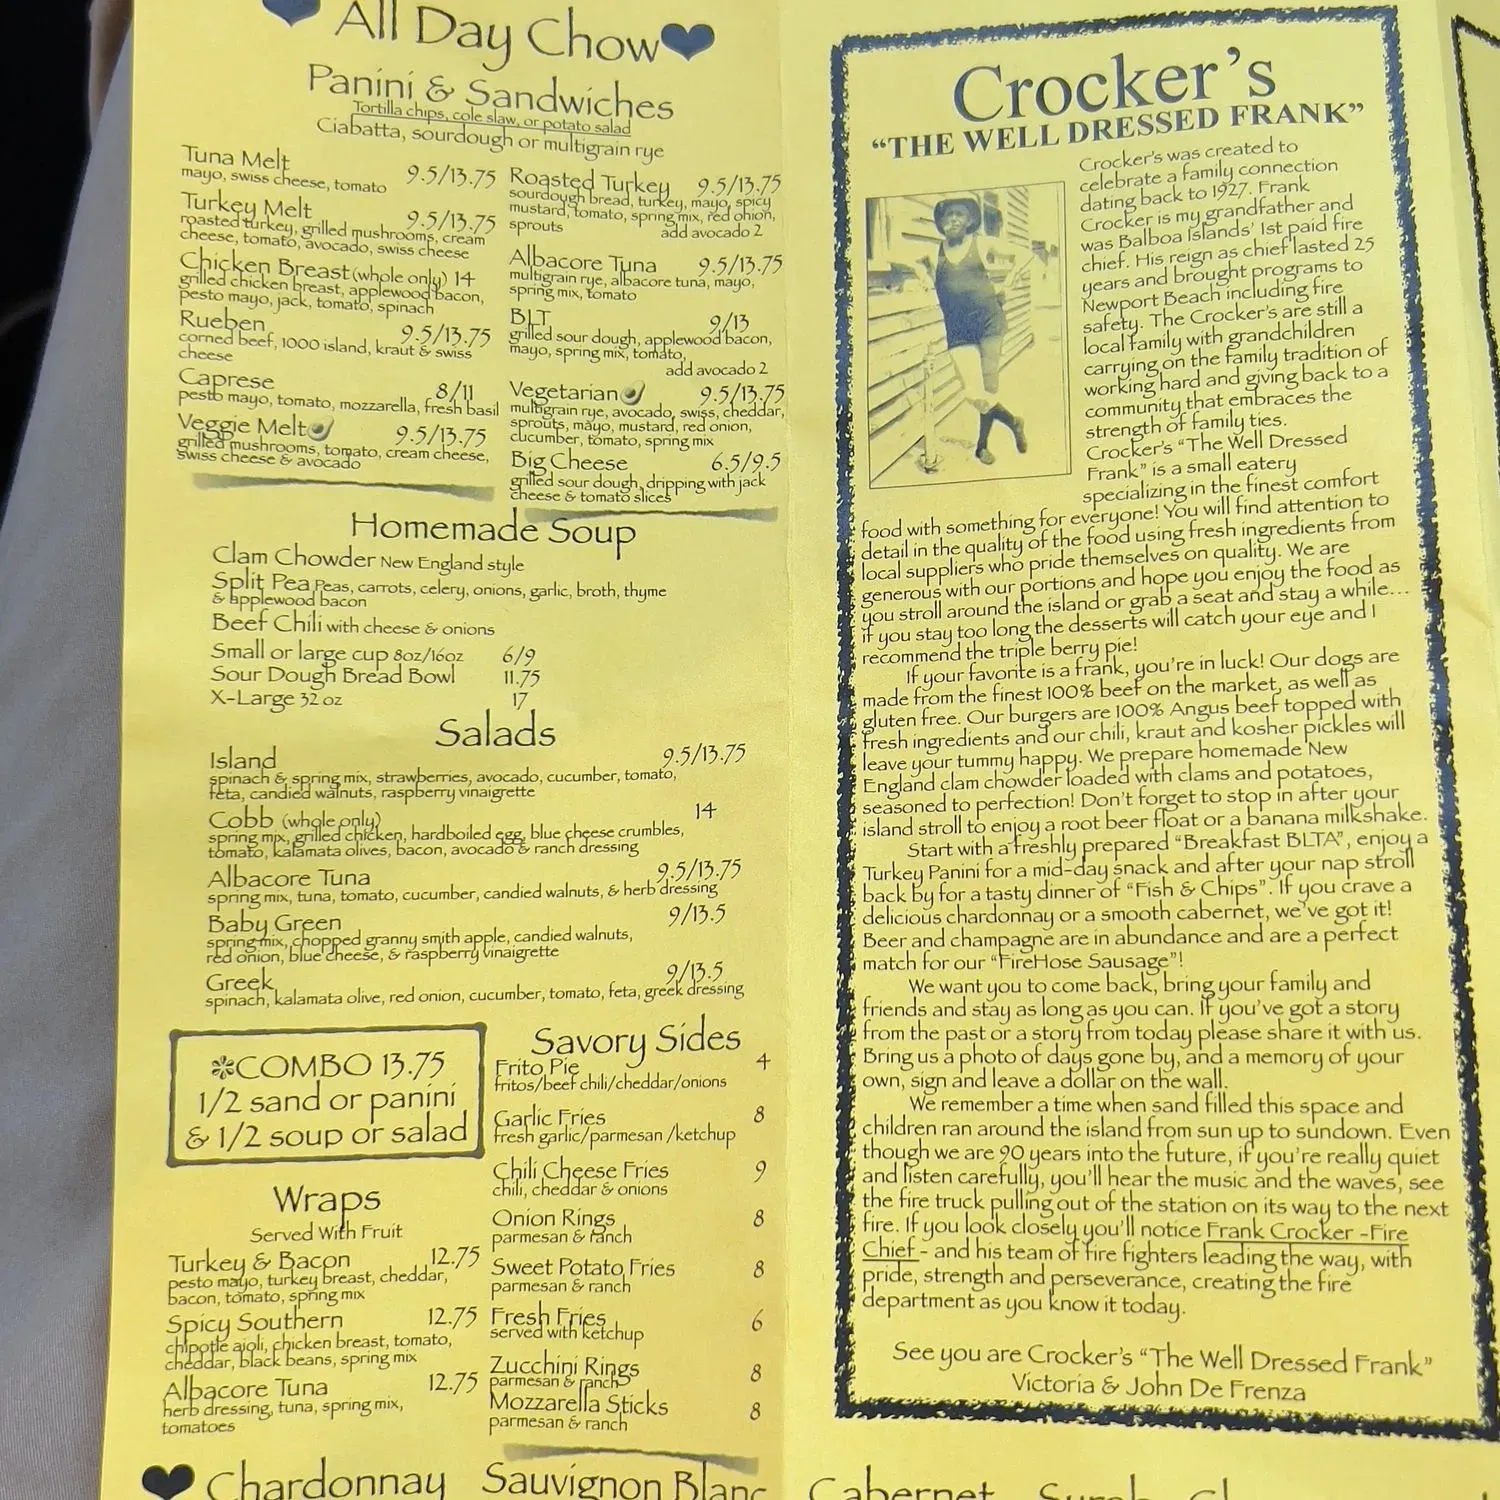 All Day Chow
Panini & Sandwiches
Tortilla chips, cole slaw, or potato salad
Ciabatta, sourdough or multigrain rye
Tuna Melt 9.5/13.75
mayo, swiss cheese, tomato
Turkey Melt 9.5/13.75
roasted turkey, grilled mushrooms, cream
cheese, tomato, avocado, swiss cheese
Chicken Breast (whole only) 14
grilled chicken breast, applewood bacon,
pesto mayo, jack, tomato, spinach
Rueben 9.5/13.75
corned beef, 1000 island, kraut & swiss
cheese
Caprese 8/11
pesto mayo, tomato, mozzarella, fresh basil
Veggie Melt 9.5/13.75
grilled mushrooms, tomato, cream cheese,
swiss cheese & avocado
Roasted Turkey 9.5/13.75
sourdough bread, turkey, mayo, spicy
mustard, tomato, spring mix, red onion,
sprouts add avocado 2
Albacore Tuna 9.5/13.75
multigrain rye, albacore tuna, mayo,
spring mix, tomato
BLT 9/13
grilled sour dough, applewood bacon,
mayo, spring mix, tomato,
add avocado 2
Vegetarian 9.5/13.75
multigrain rye, avocado, swiss, cheddar,
sprouts, mayo, mustard, red onion,
cucumber, tomato, spring mix
Big Cheese 6.5/9.5
grilled sour dough, dripping with jack
cheese & tomato slices
Homemade Soup
Clam Chowder New England style
Split Pea Peas, carrots, celery, onions, garlic, broth, thyme
& applewood bacon
Beef Chili with cheese & onions
Small or large cup 8oz/16oz 6/9
Sour Dough Bread Bowl 11.75
X-Large 32 oz 17
Salads
Island 9.5/13.75
spinach & spring mix, strawberries, avocado, cucumber, tomato,
feta, candied walnuts, raspberry vinaigrette
Cobb (whole only) 14
spring mix, grilled chicken, hardboiled egg, blue cheese crumbles,
tomato, kalamata olives, bacon, avocado & ranch dressing
Albacore Tuna 9.5/13.75
spring mix, tuna, tomato, cucumber, candied walnuts, & herb dressing
Baby Green 9/13.5
spring mix, chopped granny smith apple, candied walnuts,
red onion, blue cheese, & raspberry vinaigrette
Greek 9/13.5
spinach, kalamata olive, red onion, cucumber, tomato, feta, greek dressing
❃COMBO 13.75
1/2 sand or panini
& 1/2 soup or salad
Wraps
Served With Fruit
Turkey & Bacon 12.75
pesto mayo, turkey breast, cheddar,
bacon, tomato, spring mix
Spicy Southern 12.75
chipotle aioli, chicken breast, tomato,
cheddar, black beans, spring mix
Albacore Tuna 12.75
herb dressing, tuna, spring mix,
tomatoes
Savory Sides
Frito Pie 4
fritos/beef chili/cheddar/onions
Garlic Fries 8
fresh garlic/parmesan /ketchup
Chili Cheese Fries 9
chili, cheddar & onions
Onion Rings 8
parmesan & ranch
Sweet Potato Fries 8
parmesan & ranch
Fresh Fries 6
served with ketchup
Zucchini Rings 8
parmesan & ranch
Mozzarella Sticks 8
parmesan & ranch
Crocker's
"THE WELL DRESSED FRANK"
Crocker's was created to
celebrate a family connection
dating back to 1927. Frank
Crocker is my grandfather and
was Balboa Islands' 1st paid fire
chief. His reign as chief lasted 25
years and brought programs to
Newport Beach including fire
safety. The Crocker's are still a
local family with grandchildren
carrying on the family tradition of
working hard and giving back to a
community that embraces the
strength of family ties.
Crocker's "The Well Dressed
Frank" is a small eatery
specializing in the finest comfort
food with something for everyone! You will find attention to
detail in the quality of the food using fresh ingredients from
local suppliers who pride themselves on quality. We are
generous with our portions and hope you enjoy the food as
you stroll around the island or grab a seat and stay a while...
if you stay too long the desserts will catch your eye and I
recommend the triple berry pie!
If your favorite is a frank, you're in luck! Our dogs are
made from the finest 100% beef on the market, as well as
gluten free. Our burgers are 100% Angus beef topped with
fresh ingredients and our chili, kraut and kosher pickles will
leave your tummy happy. We prepare homemade New
England clam chowder loaded with clams and potatoes,
seasoned to perfection! Don't forget to stop in after your
island stroll to enjoy a root beer float or a banana milkshake.
Start with a freshly prepared "Breakfast BLTA", enjoy a
Turkey Panini for a mid-day snack and after your nap stroll
back by for a tasty dinner of "Fish & Chips". If you crave a
delicious chardonnay or a smooth cabernet, we've got it!
Beer and champagne are in abundance and are a perfect
match for our "FireHose Sausage"!
We want you to come back, bring your family and
friends and stay as long as you can. If you've got a story
from the past or a story from today please share it with us.
Bring us a photo of days gone by, and a memory of your
own, sign and leave a dollar on the wall.
We remember a time when sand filled this space and
children ran around the island from sun up to sundown. Even
though we are 90 years into the future, if you're really quiet
and listen carefully, you'll hear the music and the waves, see
the fire truck pulling out of the station on its way to the next
fire. If you look closely you'll notice Frank Crocker -Fire
Chief - and his team of fire fighters leading the way, with
pride, strength and perseverance, creating the fire
department as you know it today.
See you are Crocker's "The Well Dressed Frank"
Victoria & John De Frenza
Chardonnay Sauvignon Blanc Cabernet